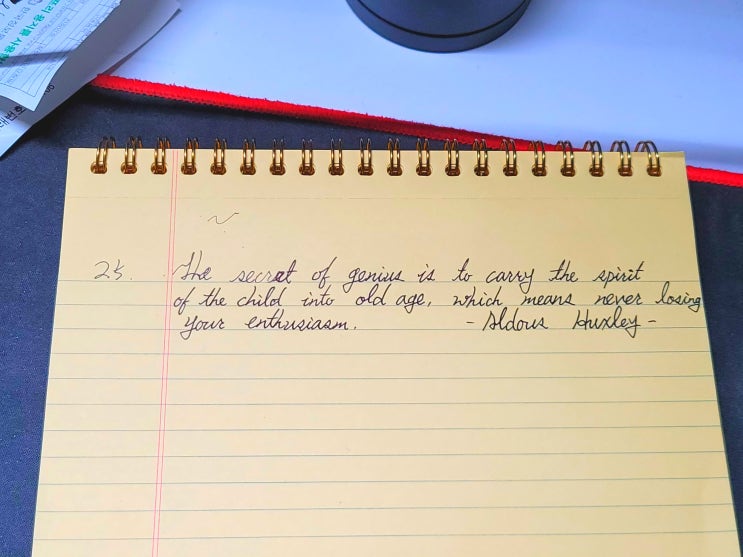 25. The secret of genius is to carry the spirit
of the child into old age, which means never losing
your enthusiasm. - Aldous Huxley -